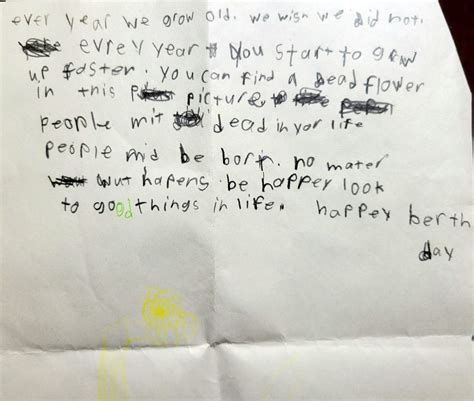 ever year we grow old. we wish we did not.
evrey year you start to grow
up faster. you can find a dead flower
in this picture.
people mit dead in yor life
people mid be born. no mater
wut hapens be happey look
to good things in life. happey berth
day